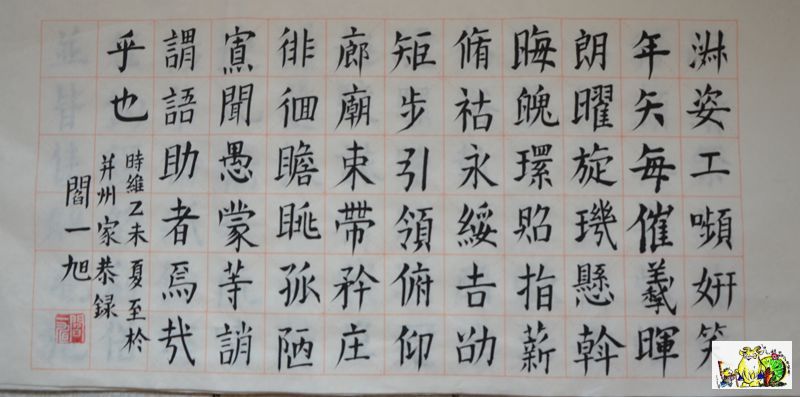 淑姿工嚬妍笑
年矢每催羲暉
朗曜旋璣懸斡
晦魄環照指薪
脩祜永綏吉劭
矩步引領俯仰
廊廟束帶矜庄
徘徊瞻眺孤陋
寡聞愚蒙等誚
謂語助者焉哉
乎也
時維乙未夏至於
并州家恭錄
閻一旭